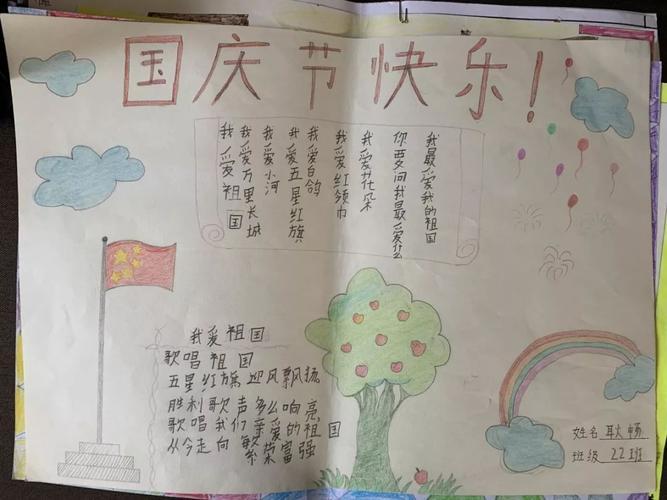 国庆节快乐!
我爱祖国
我爱万里长城
我爱小河
我爱五星红旗
我爱白鸽
我爱红领巾
我爱花朵
你要问我最爱什么
我最爱我的祖国
我爱祖国
歌唱祖国
五星红旗迎风飘扬
胜利歌声多么响亮
歌唱我们亲爱的祖国
从今走向繁荣富强
姓名 耿畅
班级 22班